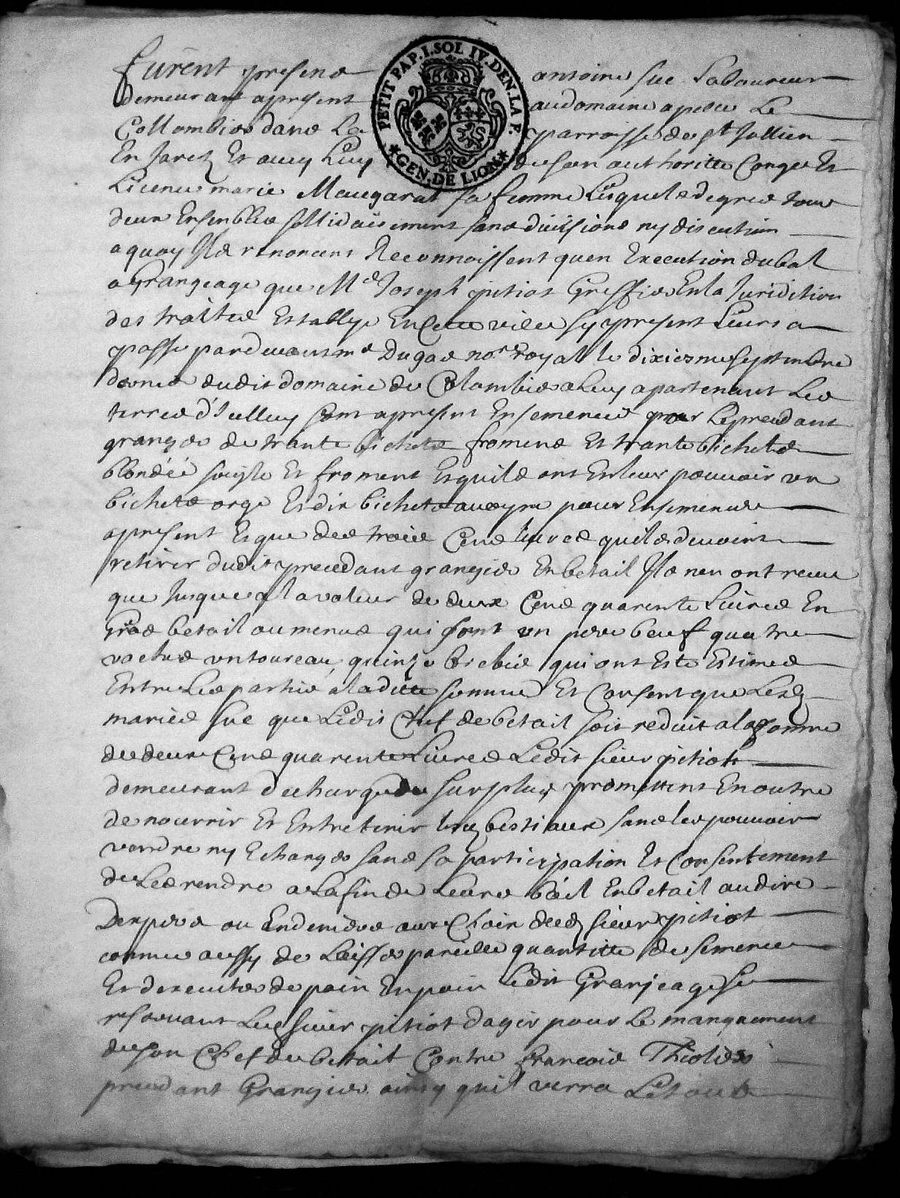 PETIT PAP. I. SOL IV. DEN. LA F.
GEN. DE LION
furent presens antoine sue Laboureur
demeurant apresent audomaine apelle Le
Collombier dans La parroisse de st Jullien
En Jarez Et avec Luy de son authoritte Conge Et
Licence marie Maugarat sa femme Lesquels de gree tous
deux Ensembles sollidairement sans divissions ny discution
a quoy Ils renoncent Reconnoissent quen Execution dubal
a Grangeage que Me Joseph pitiot Greffier En La Juridition
des traittes Establye En Cette ville sy present Leurs a
passe pardevant me Dugas nore royal le dixiesme septembre
dernier dudit domaine du Colombier a Luy apartenant Les
terres d'Icelluy sont apresent Ensemences par Le precedant
granger de trante bichets froment Et trante bichets
blondée soigle Et froment Et quils ont En leur pouvoir un
bichets orge Et dix bichets avoyne pour Ensemencer
apresent Et que des trois Cens livres quils devoint
retirer dudit precedant granger En betail Ils nen ont receu
que Jusques a la valeur de deux Cens quarente Livres En
gros betail ou menus qui sont un pere beuf quatre
vaches un toureau quinze brebis qui ont Este Estimes
Entre Les parties a laditte somme Et Consent que Lesd
maries sue que Ledit Chef de betail soit reduit a la somme
de deux Cens quarente Livres Ledit sieur pitiot
demeurant decharge du surplus promettent En outre
de nourrir Et Entretenir Lesd bestiaux sans les pouvoir
vandre ny Echanger sans sa participation Et Consentement
de Les rendre a La fin de Leurs bail En betail au dire
Dexpers ou En deniers aux Choix dud sieur pitiot
comme aussy de Laisser pareille quantitte de semence
Et dexecuter de poin En poin Ledit Granjeage se
reservant Led sieur pitiot dagir pour Le manquement
du son Chef du betail Contre francois Thiolier
precedant Granjer ainsy quil verra Le tout